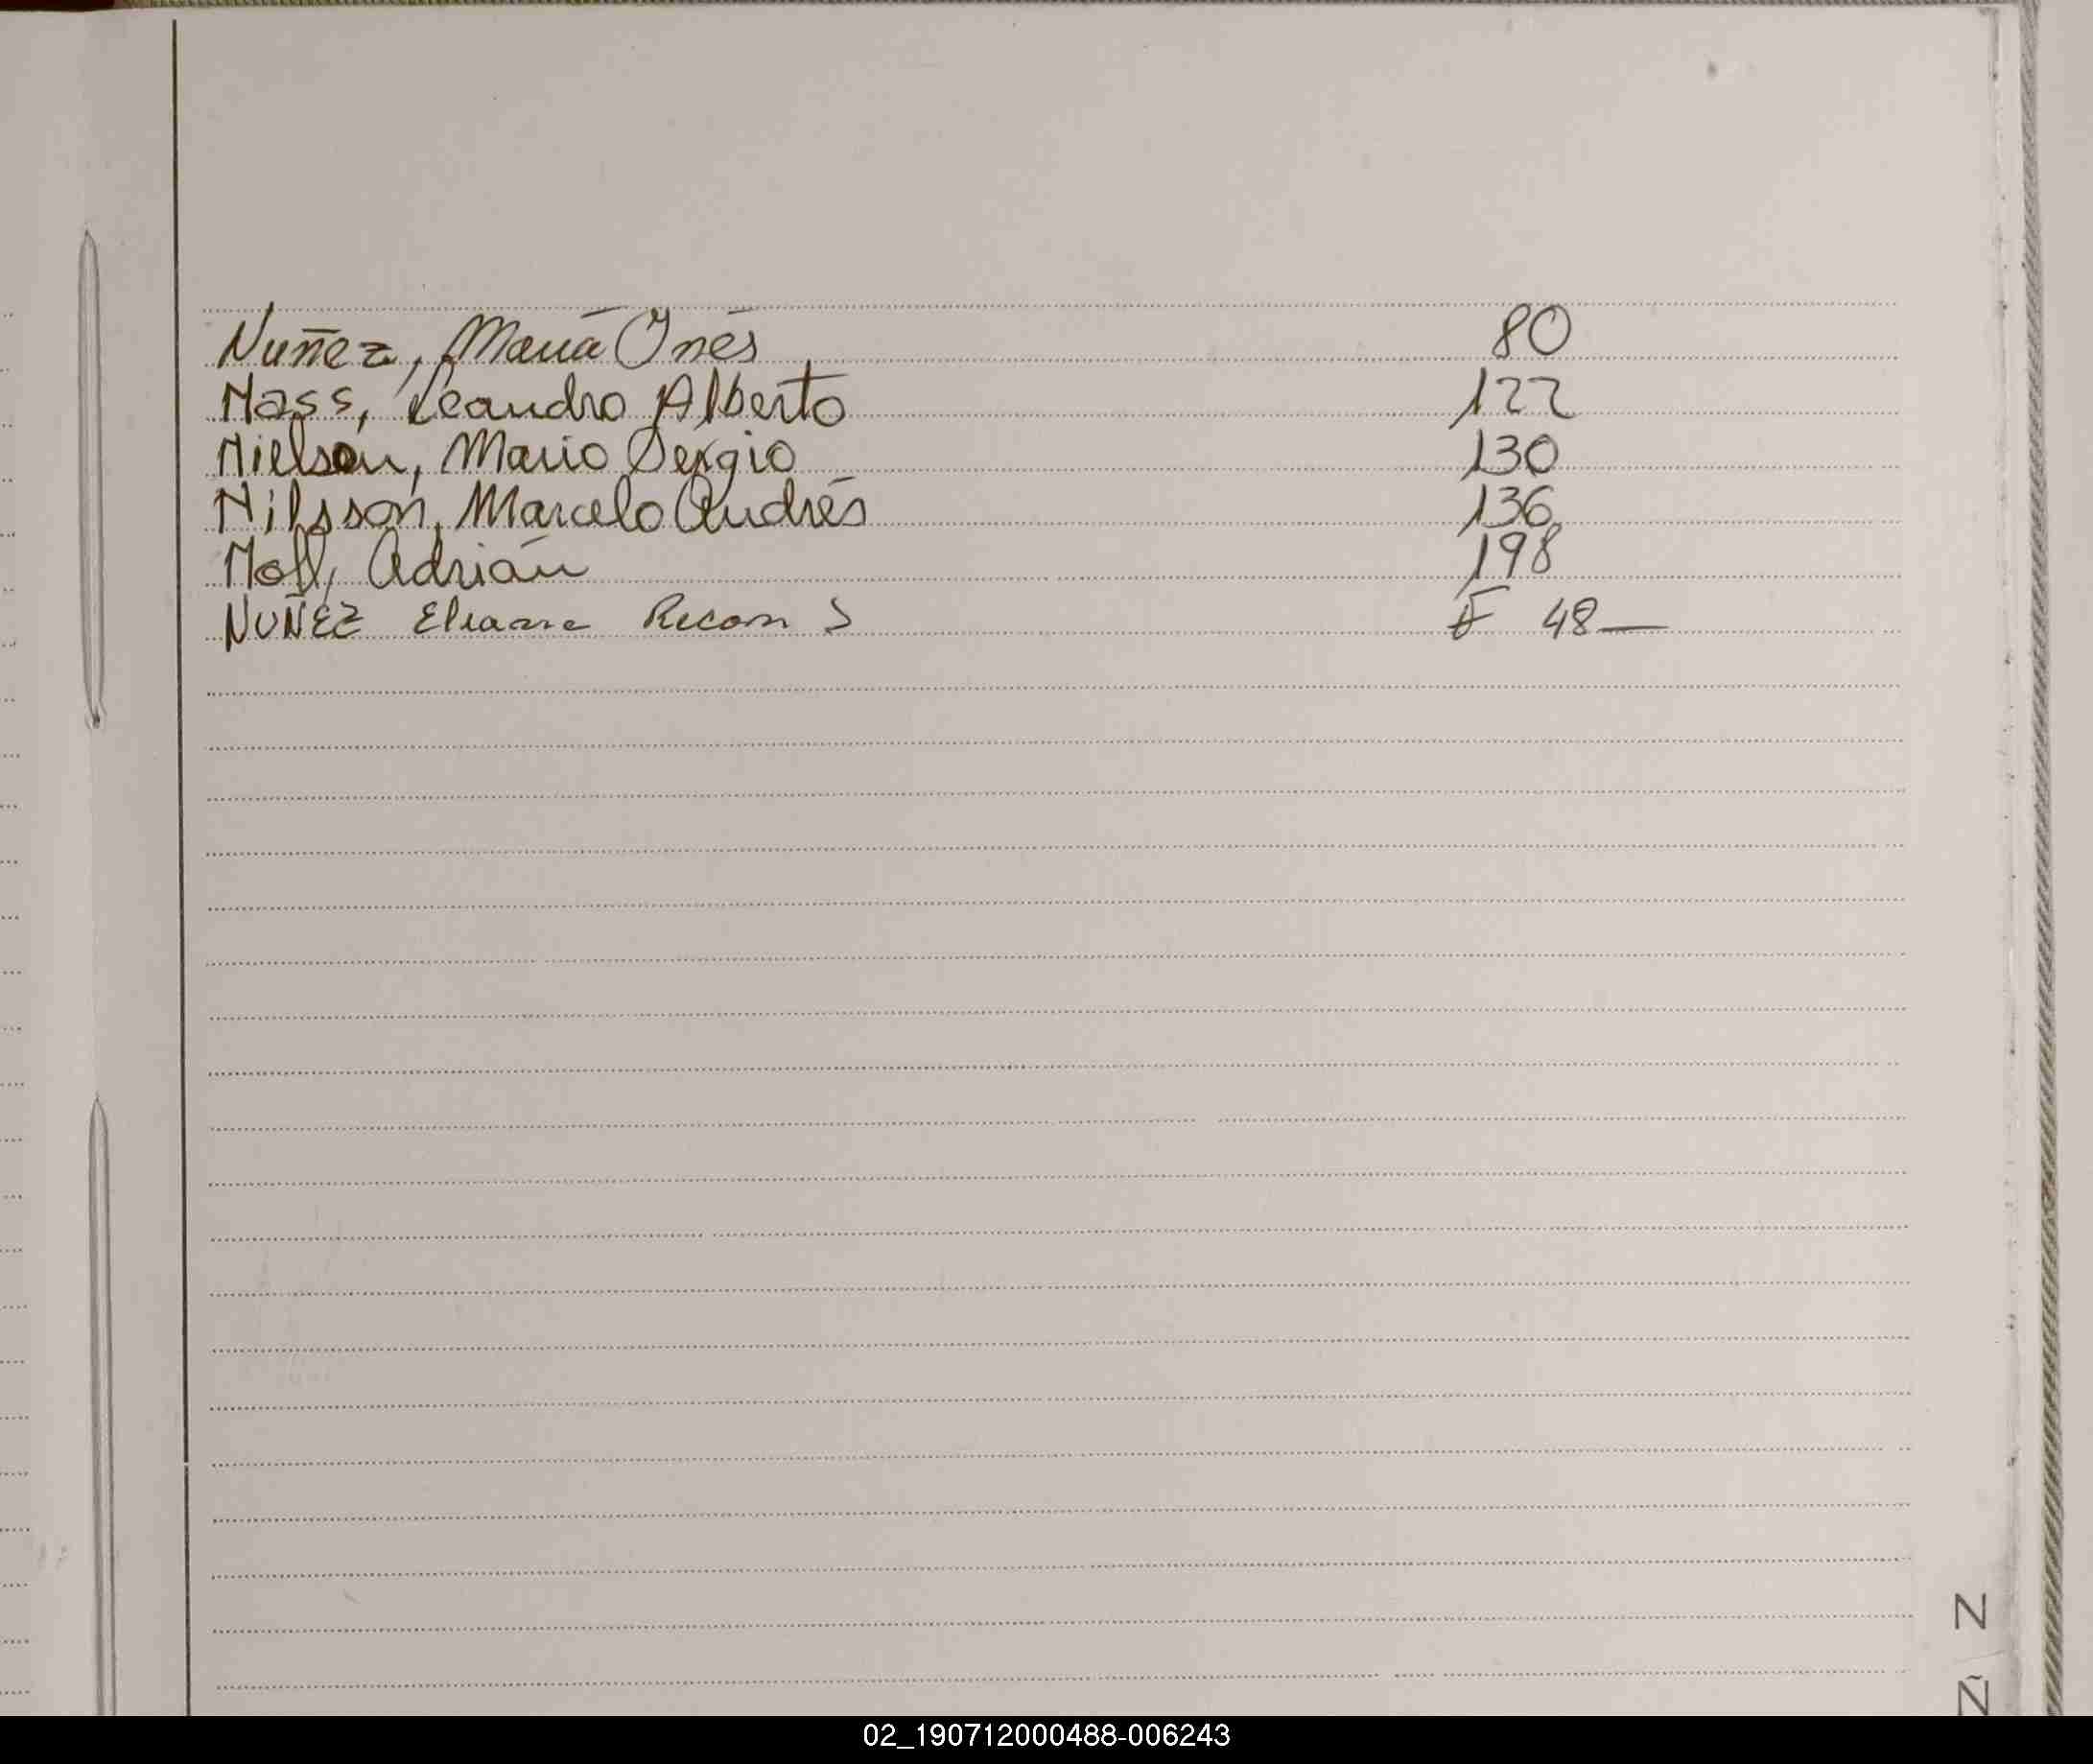 Nuñez, María Inés 80
Nass, Leandro Alberto 122
Nielson, Mario Sergio 130
Nilsson, Marcelo Andrés 136
Noll, Adrián 198
NUÑEZ Eliana Recon S F 48—
N
Ñ
02_190712000488-006243